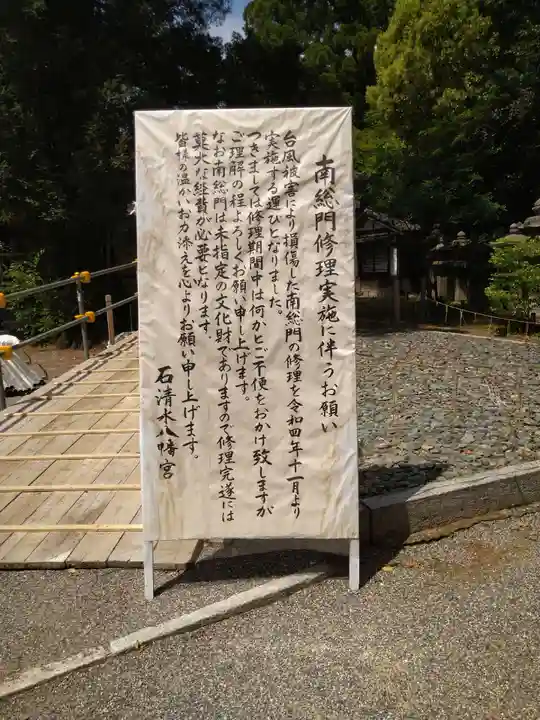 南総門修理実施に伴うお願い
台風被害により損傷した南総門の修理を令和四年十一月より
実施する運びとなりました。
つきましては修理期間中は何かとご不便をおかけ致しますが
ご理解の程よろしくお願い申し上げます。
なお南総門は未指定の文化財でありますので修理完遂には
莫大な経費が必要となります。
皆様の温かいお力添えを心よりお願い申し上げます。
石清水八幡宮